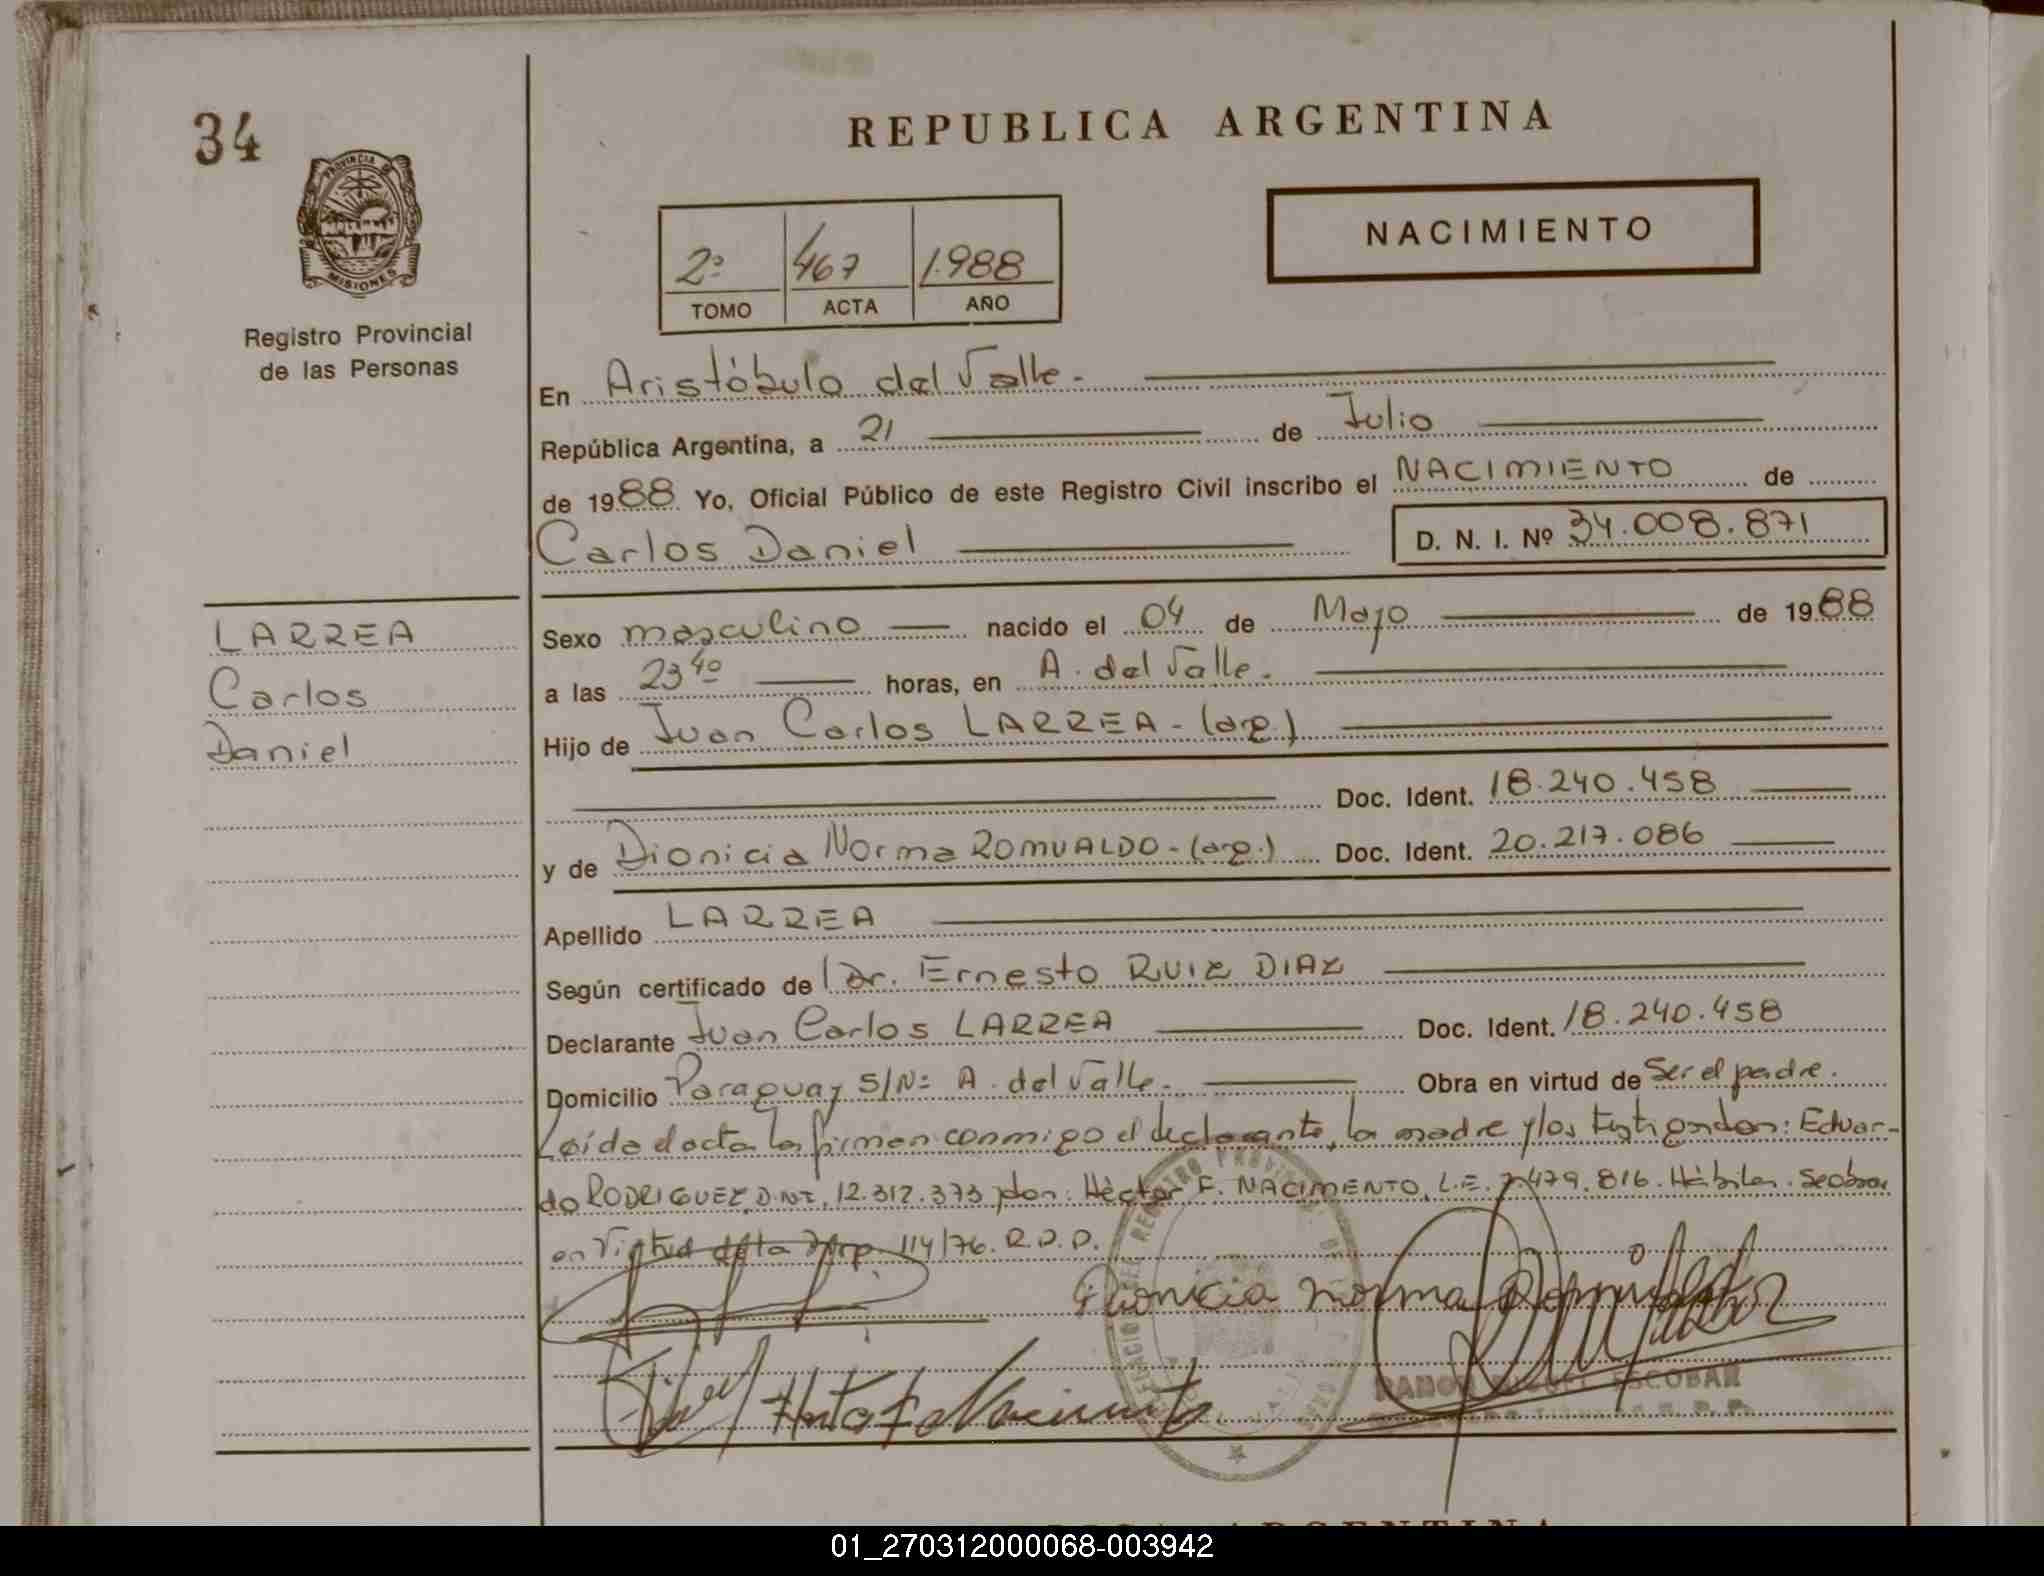 34
PROVINCIA DE
MISIONES
Registro Provincial
de las Personas
REPUBLICA ARGENTINA
NACIMIENTO
2º 467 1988
TOMO ACTA AÑO
En Aristóbulo del Valle.
República Argentina, a 21 de Julio
de 1988 Yo, Oficial Público de este Registro Civil inscribo el NACIMIENTO de
Carlos Daniel D. N. I. Nº 34.008.871
LARREA
Carlos
Daniel
Sexo masculino nacido el 04 de Mayo de 1988
a las 23 40 horas, en A. del Valle.
Hijo de Juan Carlos LARREA - (arg.)
Doc. Ident. 18.240.458
y de Dionicia Norma ROMUALDO - (arg.) Doc. Ident. 20.217.086
Apellido LARREA
Según certificado de Dr. Ernesto RUIZ DIAZ
Declarante Juan Carlos LARREA Doc. Ident. 18.240.458
Domicilio Paraguay S/Nº A. del Valle. Obra en virtud de Ser el padre.
Leída el acta la firman conmigo el declarante, la madre y los testigos don: Eduar-
do RODRIGUEZ, D.N.I. 12.312.373 y don: Héctor F. NACIMENTO, L.E. 7.479.816. Hábiles. Se obra
en Virtud de la Disp. 114/76. R.P.P.
Dionicia Norma Romualdo
Hector F Nacimento
RAMON MIGUEL ESCOBAR
REPUBLICA ARGENTINA
01_270312000068-003942